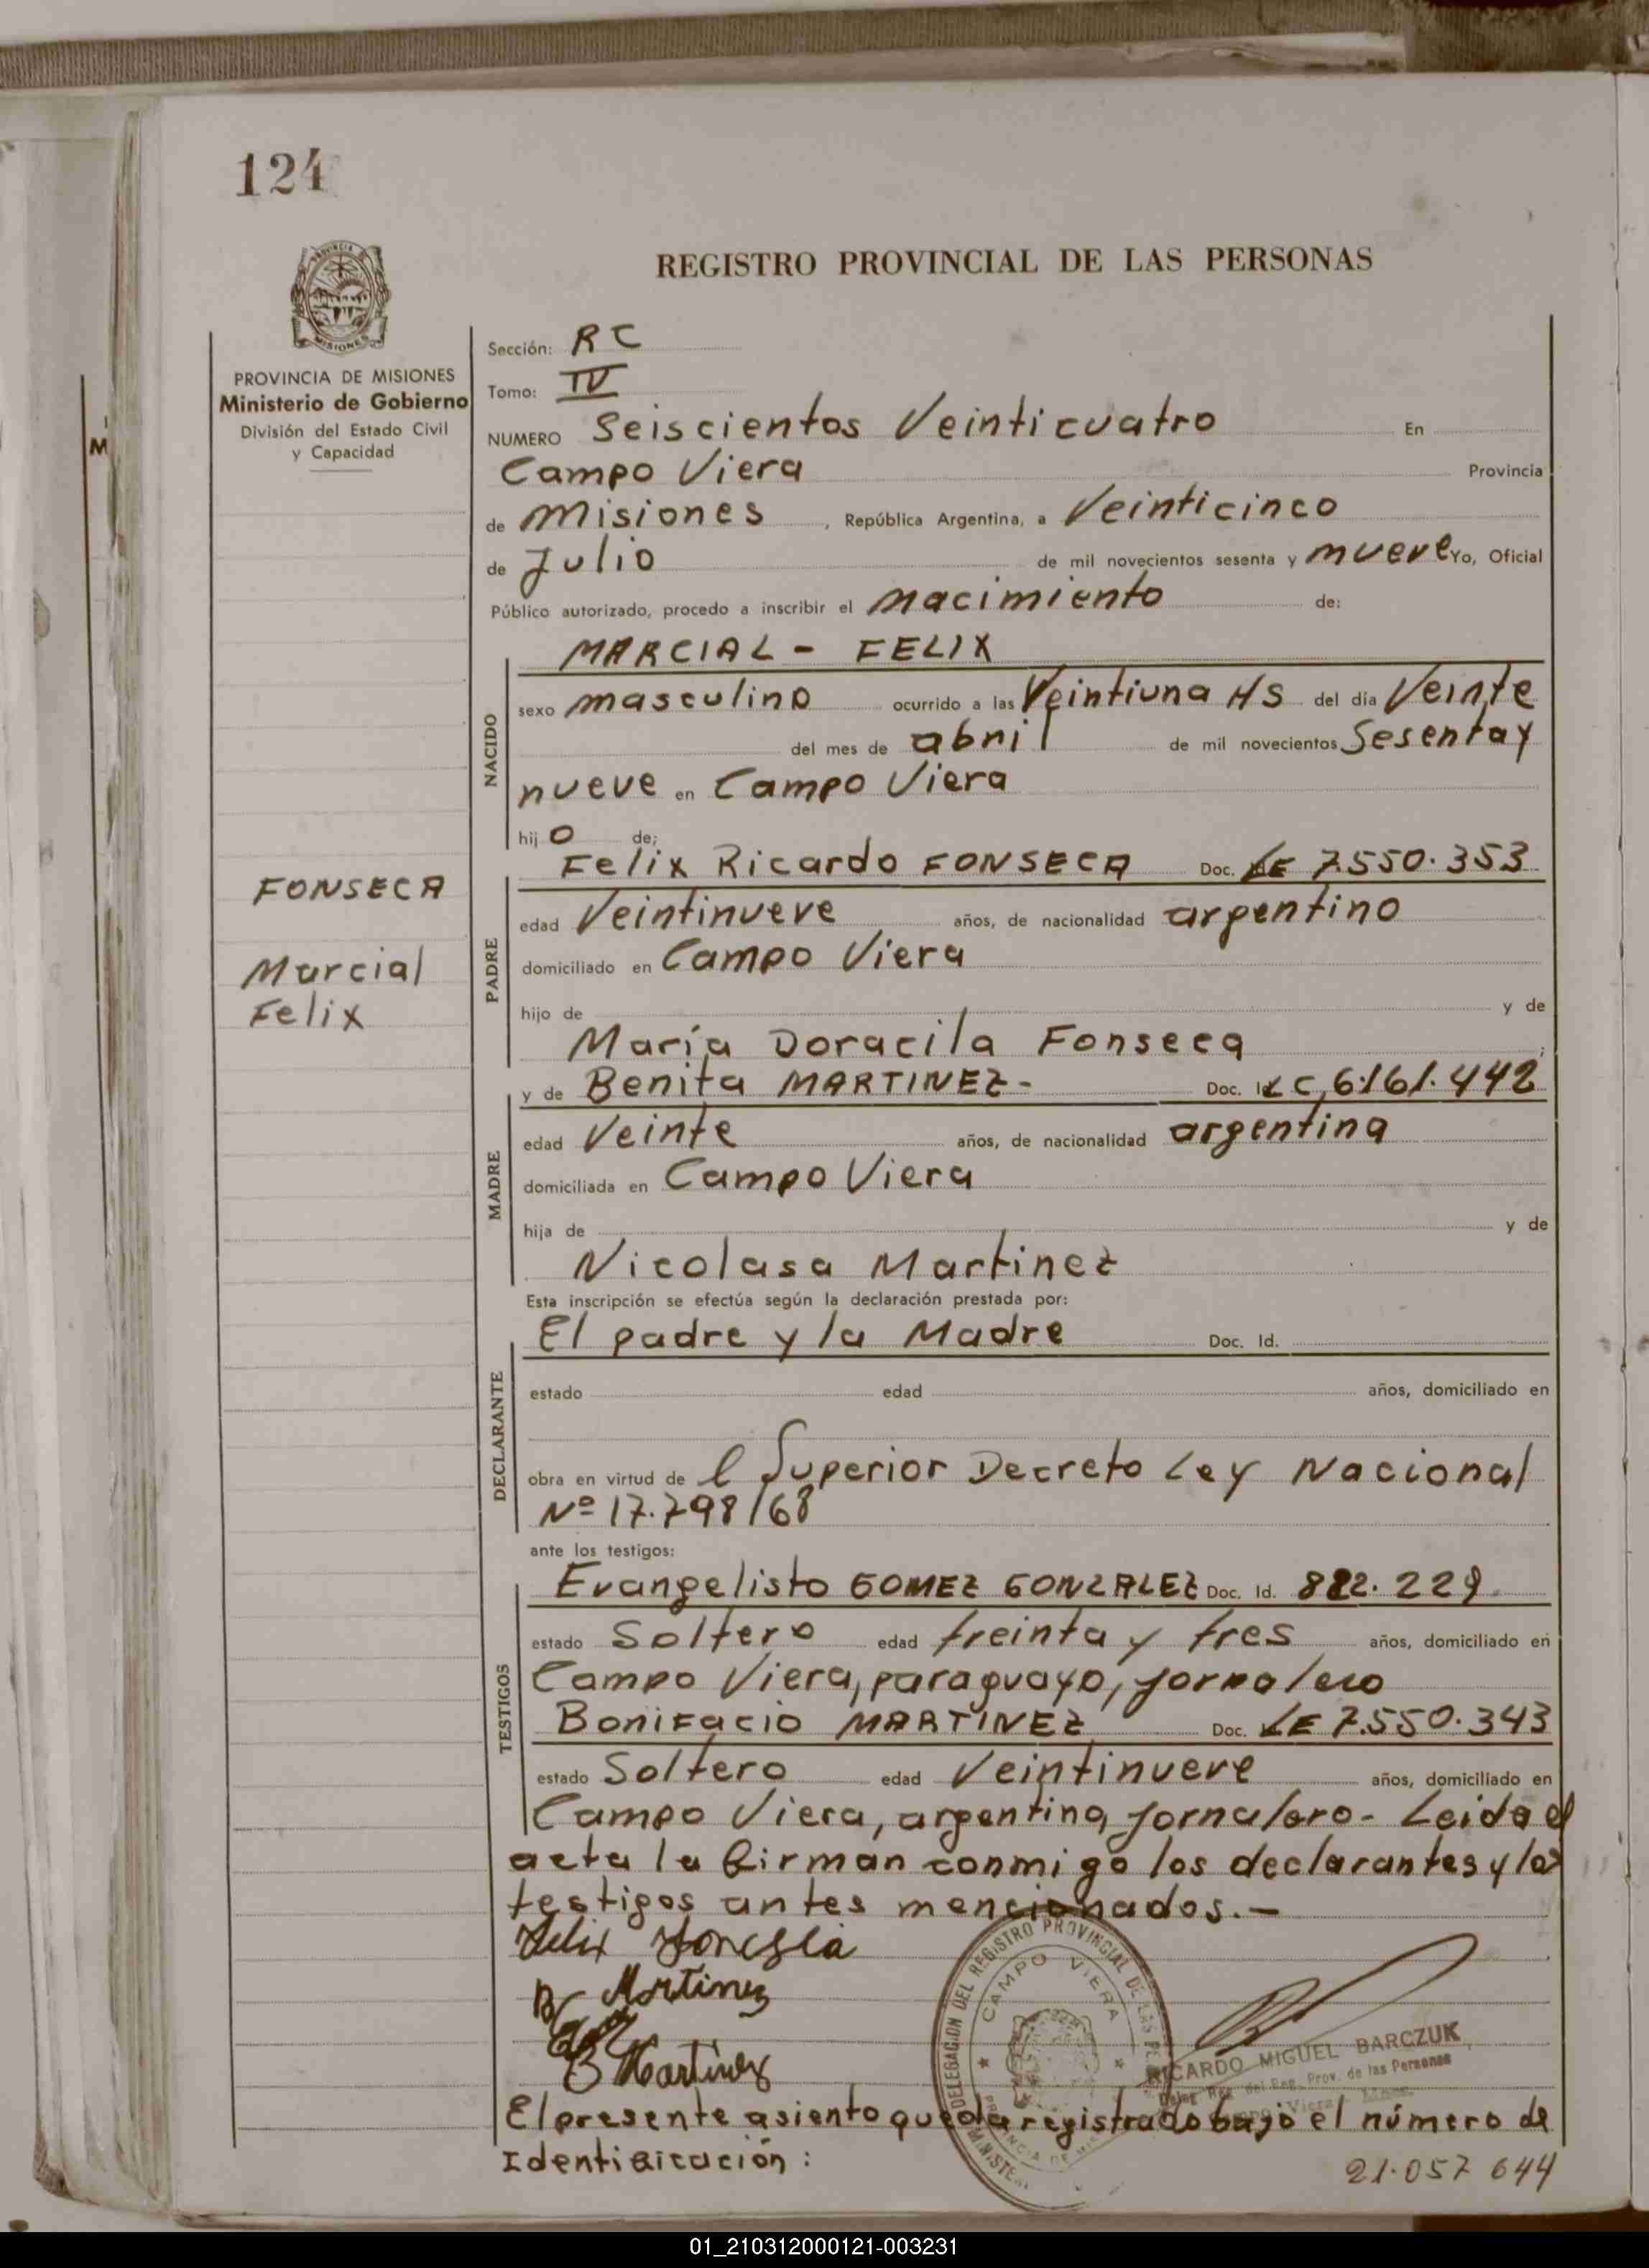 124
REGISTRO PROVINCIAL DE LAS PERSONAS
PROVINCIA DE MISIONES
Ministerio de Gobierno
División del Estado Civil
y Capacidad
Sección: RC
Tomo: IV
NUMERO Seiscientos Veinticuatro En
Campo Viera Provincia
de Misiones, República Argentina, a Veinticinco
de Julio de mil novecientos sesenta y nueve Yo, Oficial
Público autorizado, procedo a inscribir el nacimiento de:
MARCIAL - FELIX
NACIDO
sexo masculino ocurrido a las Veintiuna HS del día Veinte
del mes de abril de mil novecientos Sesenta y
nueve en Campo Viera
hijo de;
Felix Ricardo FONSECA Doc. LE 7.550.353
FONSECA
Marcial
Felix
PADRE
edad Veintinueve años, de nacionalidad argentino
domiciliado en Campo Viera
hijo de y de
María Doracila Fonseca
y de Benita MARTINEZ- Doc. LC 6.161.442
MADRE
edad Veinte años, de nacionalidad argentina
domiciliada en Campo Viera
hija de y de
Nicolasa Martinez
Esta inscripción se efectúa según la declaración prestada por:
El padre y la Madre Doc. Id.
DECLARANTE
estado edad años, domiciliado en
obra en virtud de l Superior Decreto Ley Nacional
Nº 17.798/68
ante los testigos:
Evangelisto GOMEZ GONZALEZ Doc. Id. 822.229
TESTIGOS
estado Soltero edad treinta y tres años, domiciliado en
Campo Viera, paraguayo, jornalero
Bonifacio MARTINEZ Doc. LE 7.550.343
estado Soltero edad Veintinueve años, domiciliado en
Campo Viera, argentino, jornalero- Leida el
acta la firman conmigo los declarantes y los
testigos antes mencionados.-
Felix Fonseca
B Martinez
B Martinez
DELEGACION DEL REGISTRO PROVINCIAL DE LAS
CAMPO VIERA
RICARDO MIGUEL BARCZUK
del Reg. Prov. de las Personas
El presente asiento queda registrado bajo el número de
Identificación: 21.057 644
01_210312000121-003231